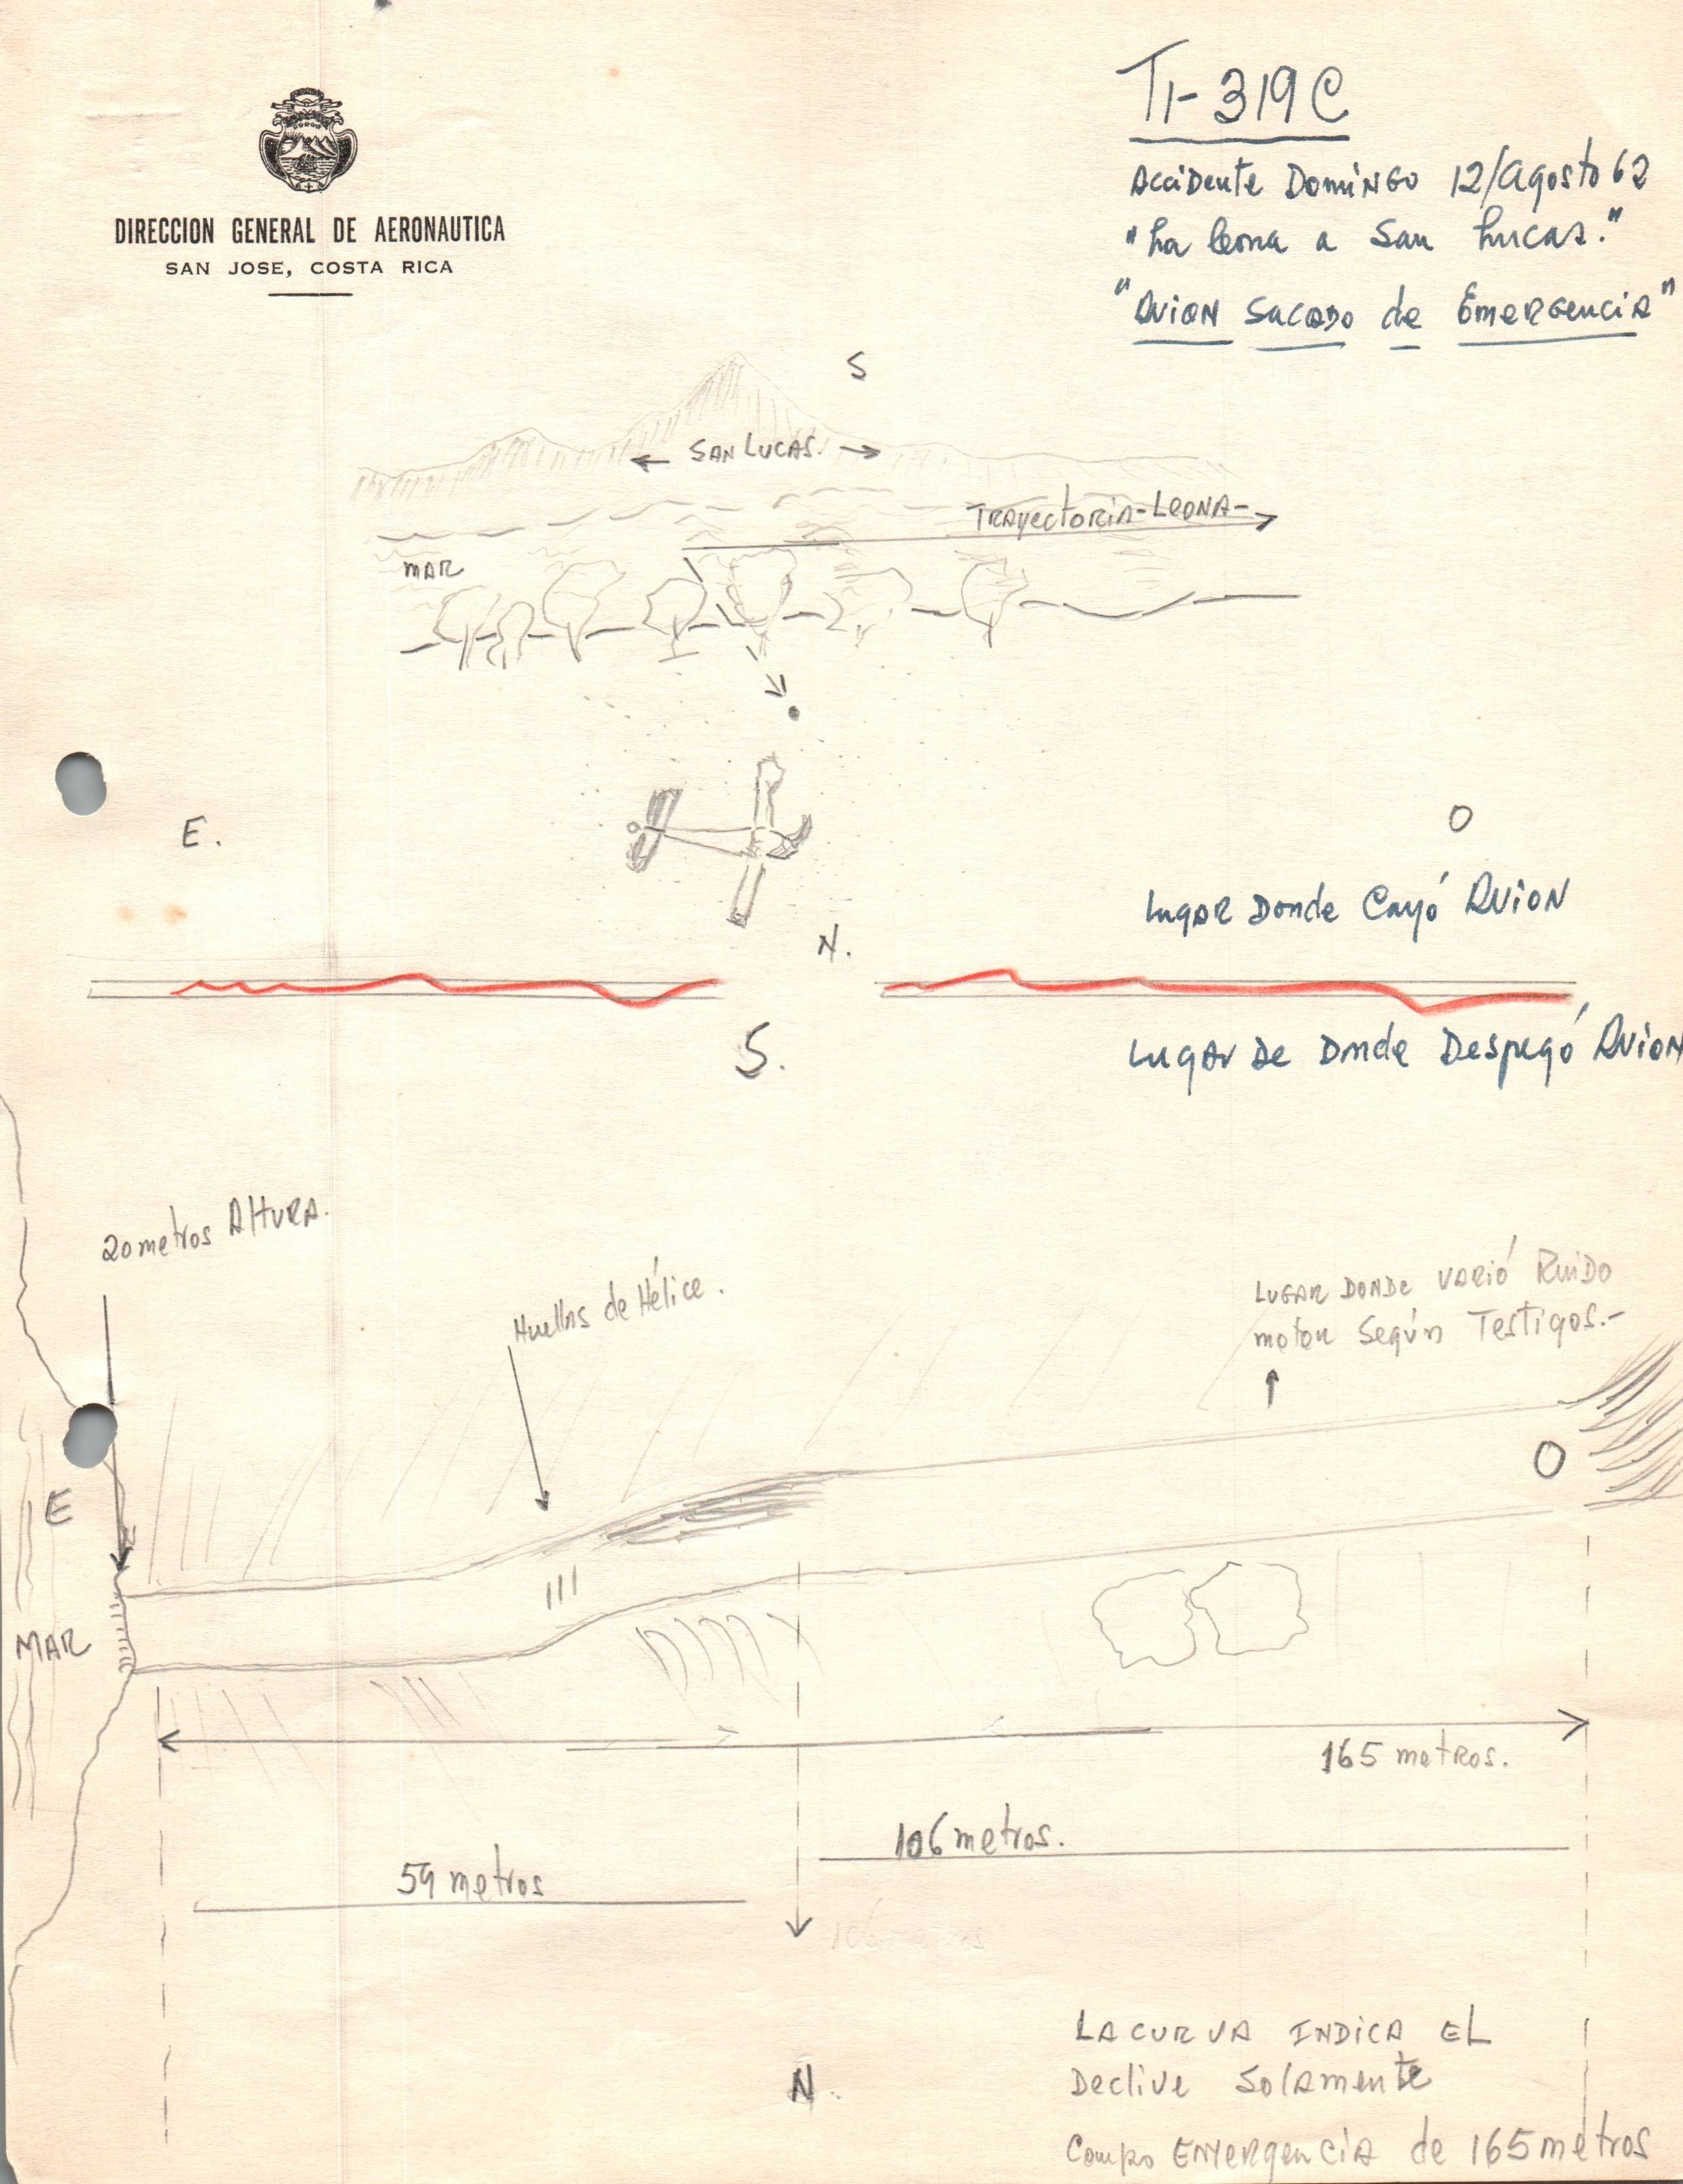 TI-319C
DIRECCION GENERAL DE AERONAUTICA
SAN JOSE, COSTA RICA
Accidente Domingo 12/Agosto 62
"La Leona a San Lucas."
"Avion Sacado de Emergencia"
S
SAN LUCAS.
Trayectoria-Leona-
MAR
E.
O
Lugar Donde Cayó Avion
N.
S.
Lugar De Donde Despegó Avion
20 metros Altura.
Huellas de Hélice.
Lugar Donde varió Ruido
motor Según Testigos.-
O
E
MAR
165 metros.
106 metros.
59 metros
106 metros
LA CURVA INDICA EL
Declive Solamente
N.
Campo Emergencia de 165 metros